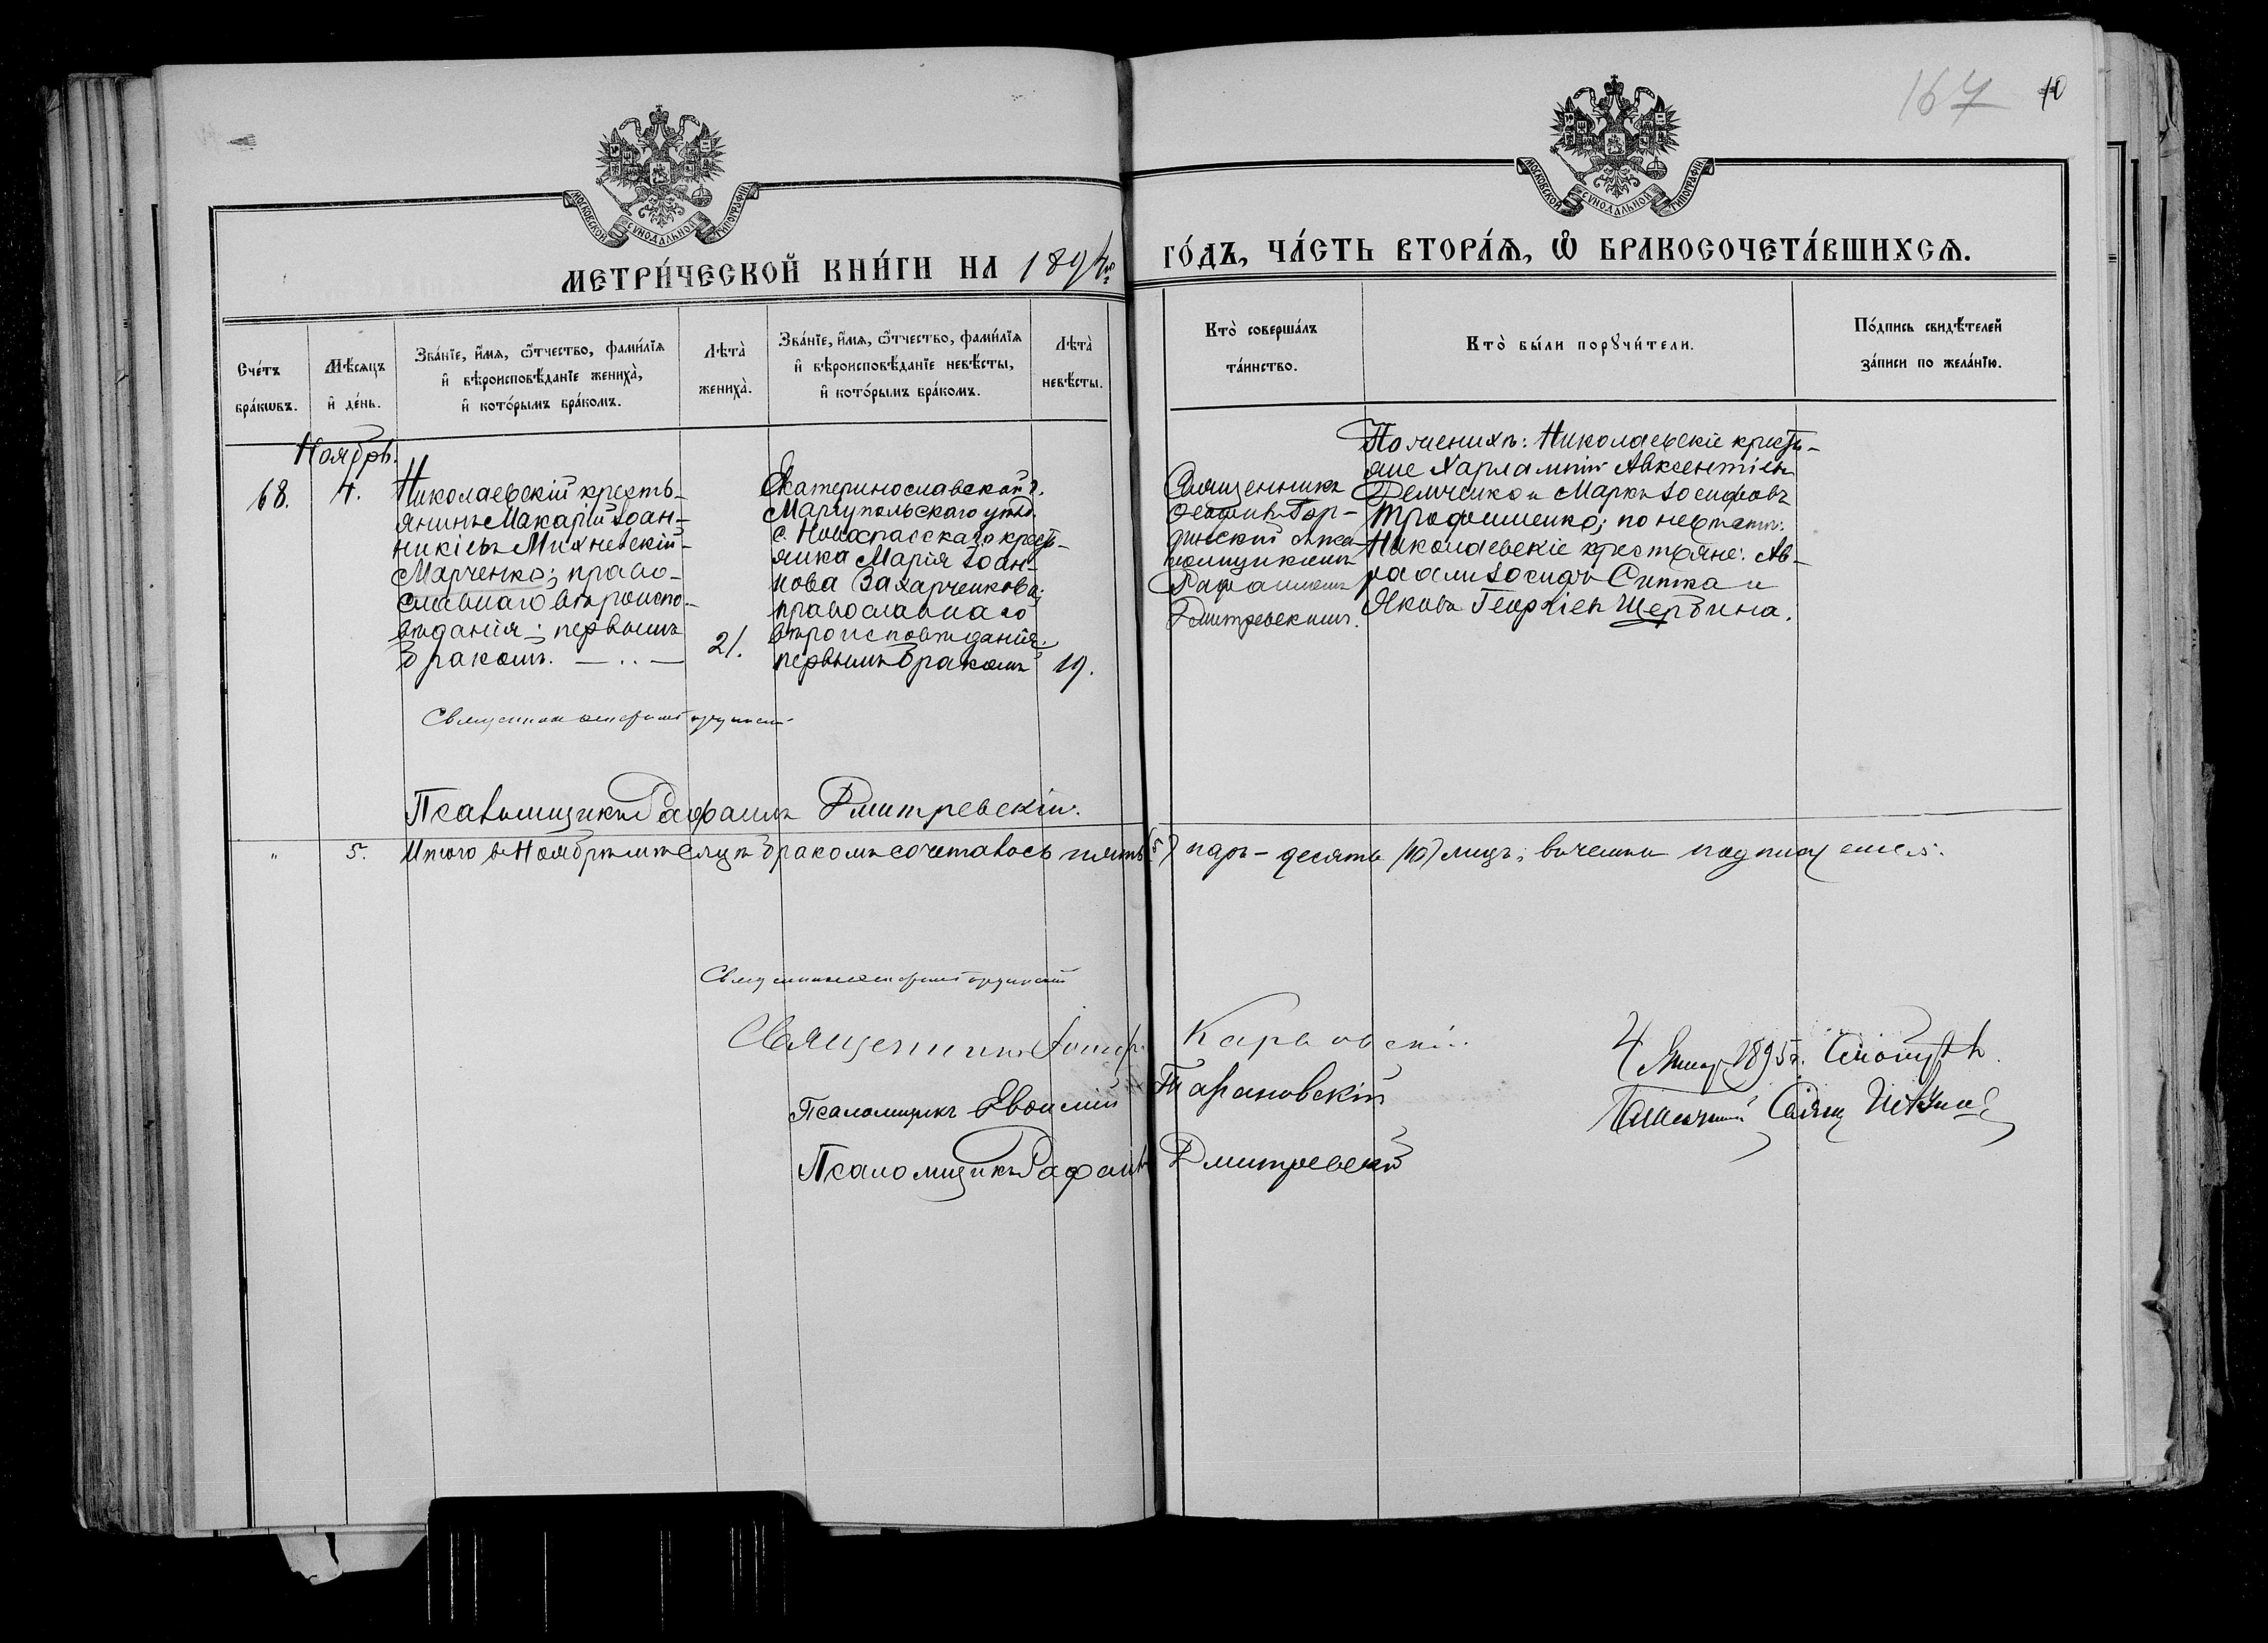 167 10
МОСКОВСКОЙ СѴНОДАЛЬНОЙ ТИПОГРАФІИ
МОСКОВСКОЙ СѴНОДАЛЬНОЙ ТИПОГРАФІИ
МЕТРИ́ЧЕСКОЙ КНИ́ГИ НА 1894й
ГО́ДЪ, ЧА́СТЬ ВТОРА́Ѧ, Ѽ БРАКОСОЧЕТА́ВШИХСѦ.
Сче́тъ бра́кѡвъ.
Мѣ́сѧцъ и҆ де́нь.
Зва́нїе, и҆́мѧ, ѻ҆́тчество, фамилїѧ
и҆ вѣроисповѣ́данїе жениха̀,
и҆ кото́рымъ бра́комъ.
Лѣта̀ жениха̀.
Зва́нїе, и҆́мѧ, ѻ҆́тчество, фамилїѧ
и҆ вѣроисповѣ́данїе невѣ́сты,
и҆ кото́рымъ бра́комъ.
Лѣта̀ невѣ́сты.
Кто̀ соверша́лъ та́инство.
Кто̀ бы́ли порꙋчи́тели.
По́дпись свидѣ́телей
за́писи по жела́нїю.
Ноябрь.
68.
4.
Николаевскій кресть-
янинъ Макарій Іоан-
никіевъ Михневскій-
Марченко; право-
славнаго вѣроиспо-
вѣданія; первымъ
бракомъ. — .. —
21.
Екатеринославской г.
Маріупольскаго уѣзд.
с. Новоспасскаго кресть-
янка Марія Іоан-
нова Захарченкова;
православнаго
вѣроисповѣданія;
первымъ бракомъ
19.
Священникъ
Гор-
динскій
Рафаиломъ
Дмитревскимъ.
По женихѣ: Николаевскіе кресть-
яне Харлампій Авксентіевъ
Демченко и Маркъ Іосифовъ
Трофименко; по невѣстѣ:
Николаевскіе крестьяне: Ав-
раамъ Іосифовъ Ситка и
Яковъ Георгіев Щербина.
Псаломщикъ Рафаилъ Дмитревскій.
"
5.
Итого въ Ноябрѣ мѣсяцѣ бракомъ сочеталось пять (5) паръ – десять (10) лицъ; въ чемъ и подписуемся.
Священникъ Карповскій
Псаломщикъ Евѳимій Тарановскій
Псаломщикъ Рафаилъ Дмитревскій
4 Января 1895 г.